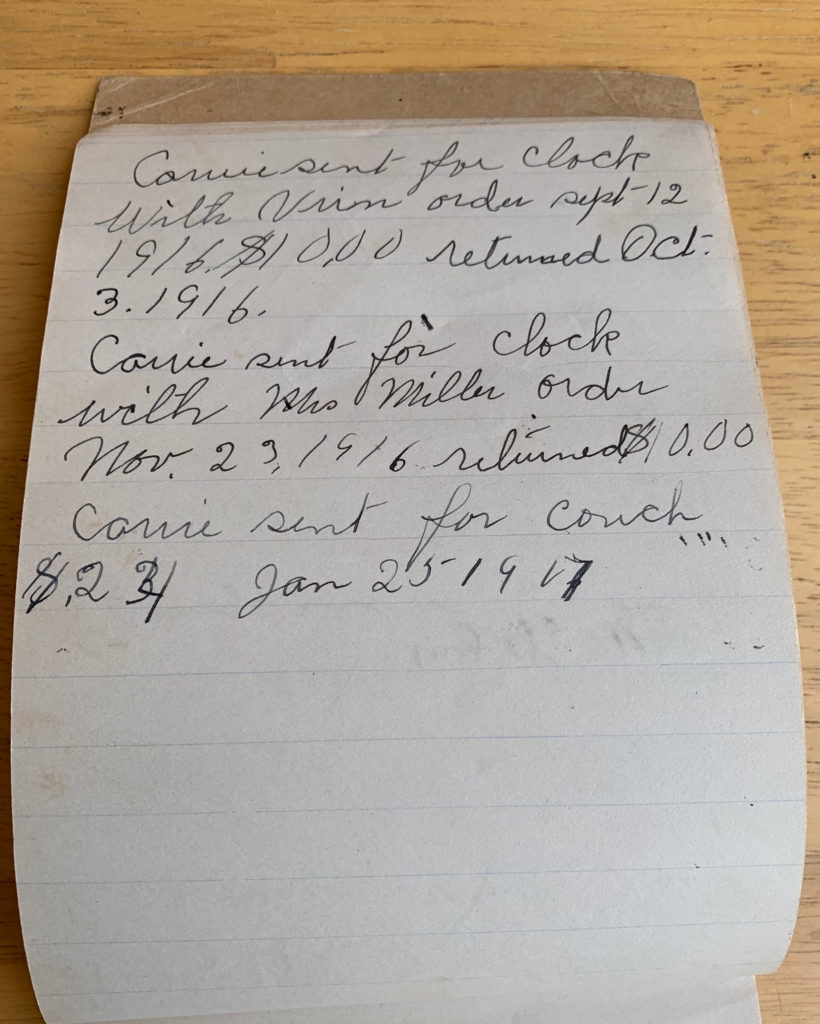 Carrie sent for clock
with order sept 12
1916. $10.00 returned Oct.
3. 1916.
Carrie sent for clock
with Mrs Miller order
Nov. 23, 1916 returned $10.00
Carrie sent for couch
Jan 25 1917